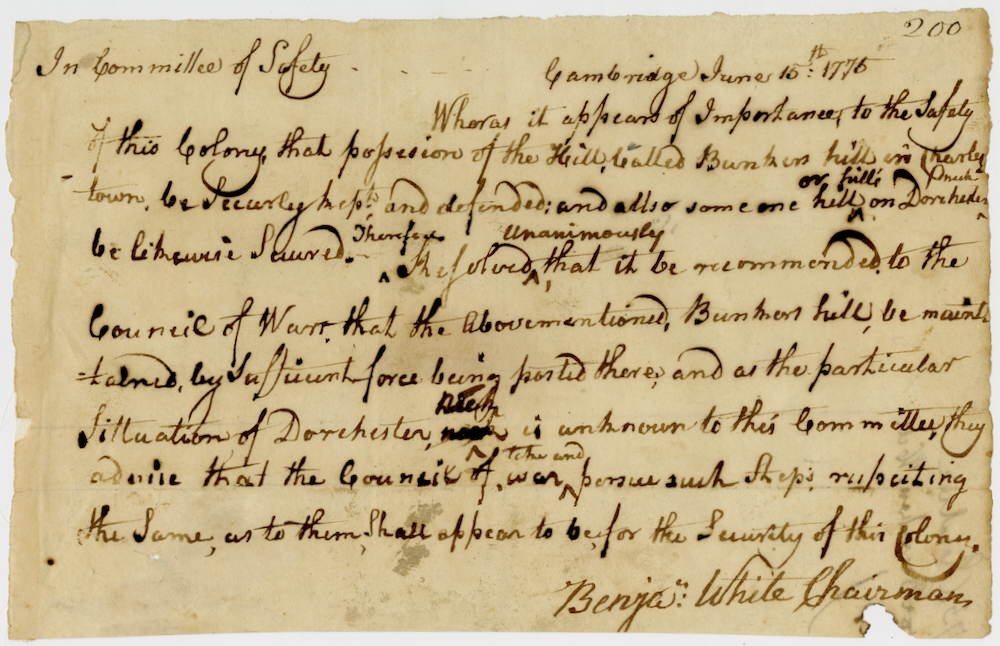 200
In Committee of Safety
Cambridge June 15th: 1775
Wheras it appears of Importance, to the Safety
of this Colony, that possesion of the Hill, Called Bunkers hill in Charles
town, be Securley kept, and defended; and allso some one hill or hills on Dorchester Neck
be likewise Secured. Therefore Resolved, Unanimously that it be recommended, to the
Council of Warr, that the Abovementioned, Bunkers hill, be maint
=tained, by Sufficient force being posted there, and as the particular
Situation of Dorchester, Neck is unknown to this Committee, they
advise that the Council of, war, take and persue such Steps, respecting
the Same, as to them, Shall appear to be, for the Security of this Colony.
Benjan: White Chairman